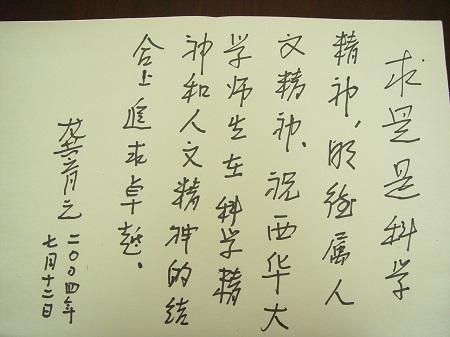 求是是科学
精神，明德属人
文精神。祝西华大
学师生在科学精
神和人文精神的结
合上追求卓越。
龚育之
二〇〇四年
七月十二日